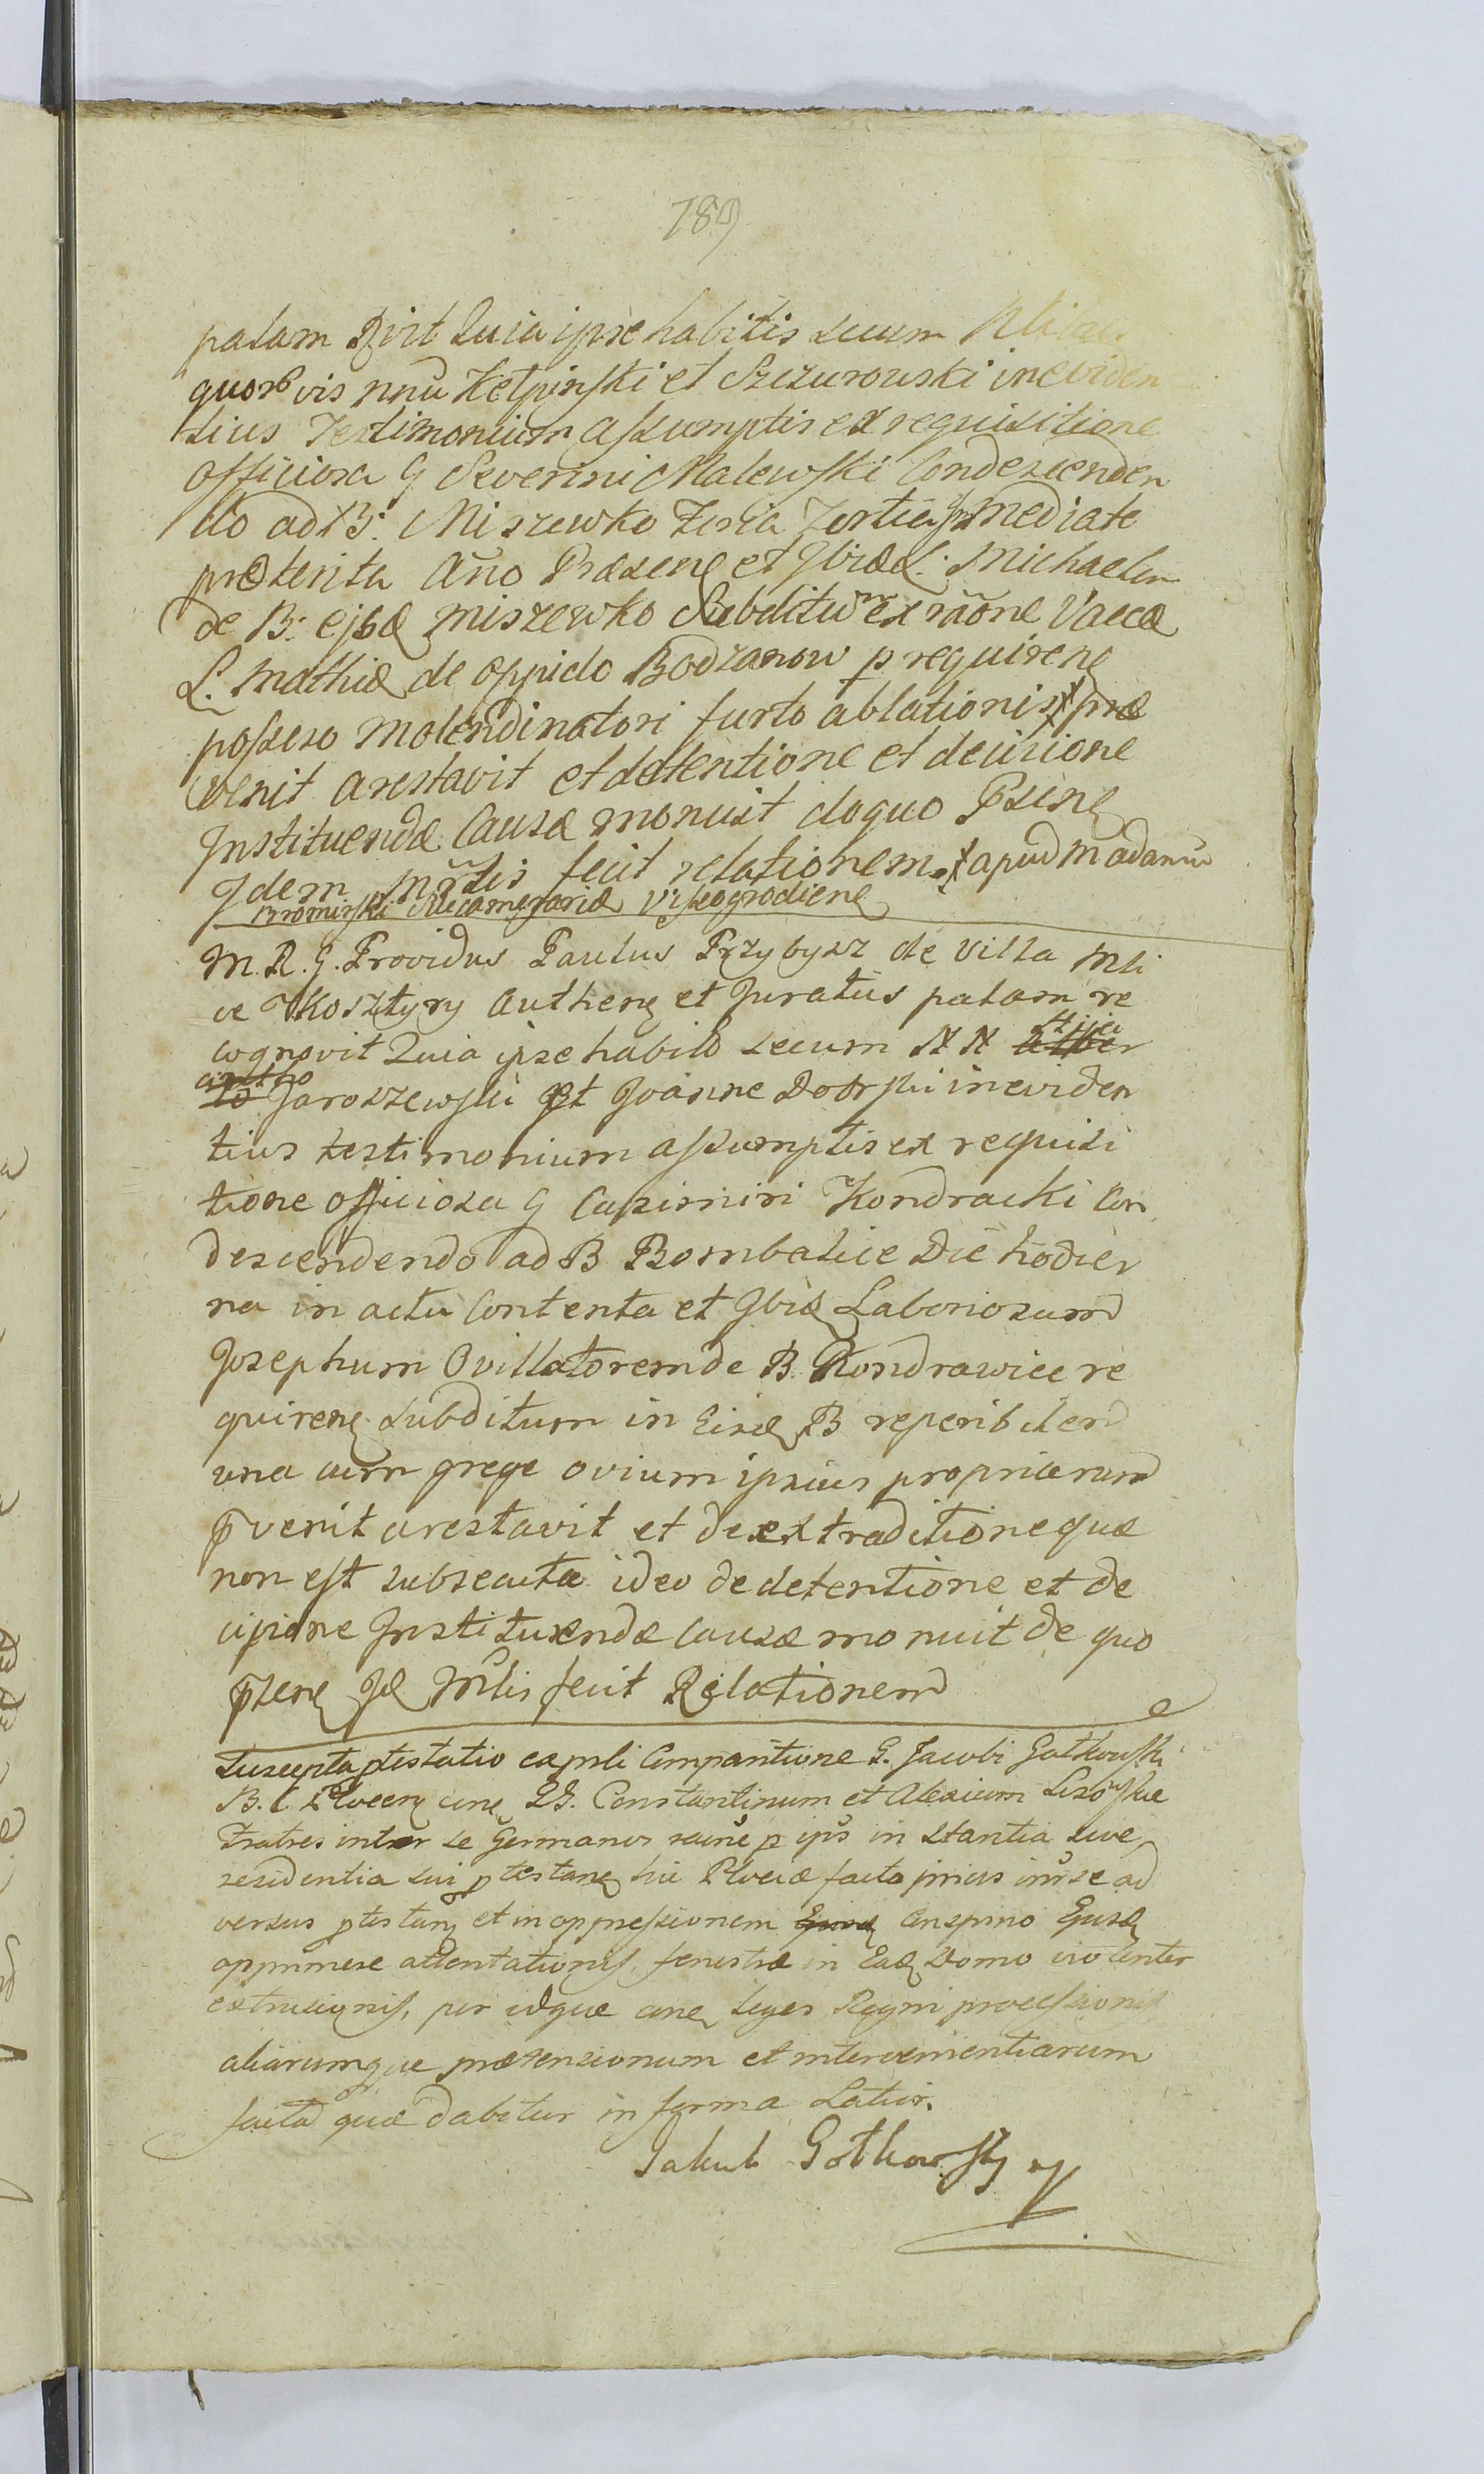 789
palam Rvit Quia ipse habitis secum
quorvis nnū Kelpinski et Szczurowski in eviden
tius Testimonium assumptis ex requisitione
officiosa G Severini Malewski Condescenden
do ad B: Miszewko feria Tertia immediate
præterita Año Præsene et Ibide L: Michaelem
de B: ejsd Miszewko Subditum ex raōne Vaccæ
L. Mathiæ de Oppido Bodzanow p requirene
possesso Molendinatori furto ablationis præ
venit arestavit et detentione et decisione
Instituendæ Causæ monuit de quo Psene
Idem Mŕlis fecit relationem. apud Madamū
Bromirski Succamerariæ Viseogrodiene
M. R. G. Providus Paulus Przybysz de Villa Mli
ce Kosztyry Authene et Juratus palam re
cognovit Quia ipse habito secum N N
Jaroszewski et Joanne Dobrski in eviden
tius testimonium assumptis ex requisi
tione officiosa G Casimiri Kondracki Con
descendendo ad B Bombalice Die hodier
na in actu Contenta et Ibid Laboriosum
Josephum Ovillatorem de B. Kondrawice re
quirene subditum in Eisd B reperibilem
una cum grege ovium ipsius propriarum
pvenit arestavit et de extraditione quæ
non est subsecuta ideo de detentione et de
cisione Instituendæ Causæ monuit de quo
psene Id Mŕlis fecit Relationem
Suscepta ptestatio ex pnli Comparitione G. Jacobi Gotkowski
B. C. Plocen cine GG. Constantinum et Alexium
Fratres inter se Germanos racine p ips in Stantia sive
residentia sui ptestane hic Plociæ facta prius
versus ptestane et in oppressionem Conspirio Ejusd
opprimere attentationis, fenestræ in Ead Domo violenter
extrusionis, per idque cine Leges Regni processionis
aliarumque prætensionum et intervenientiarum
facta quæ dabitur in forma Latior.
Jakub Gotkowsky